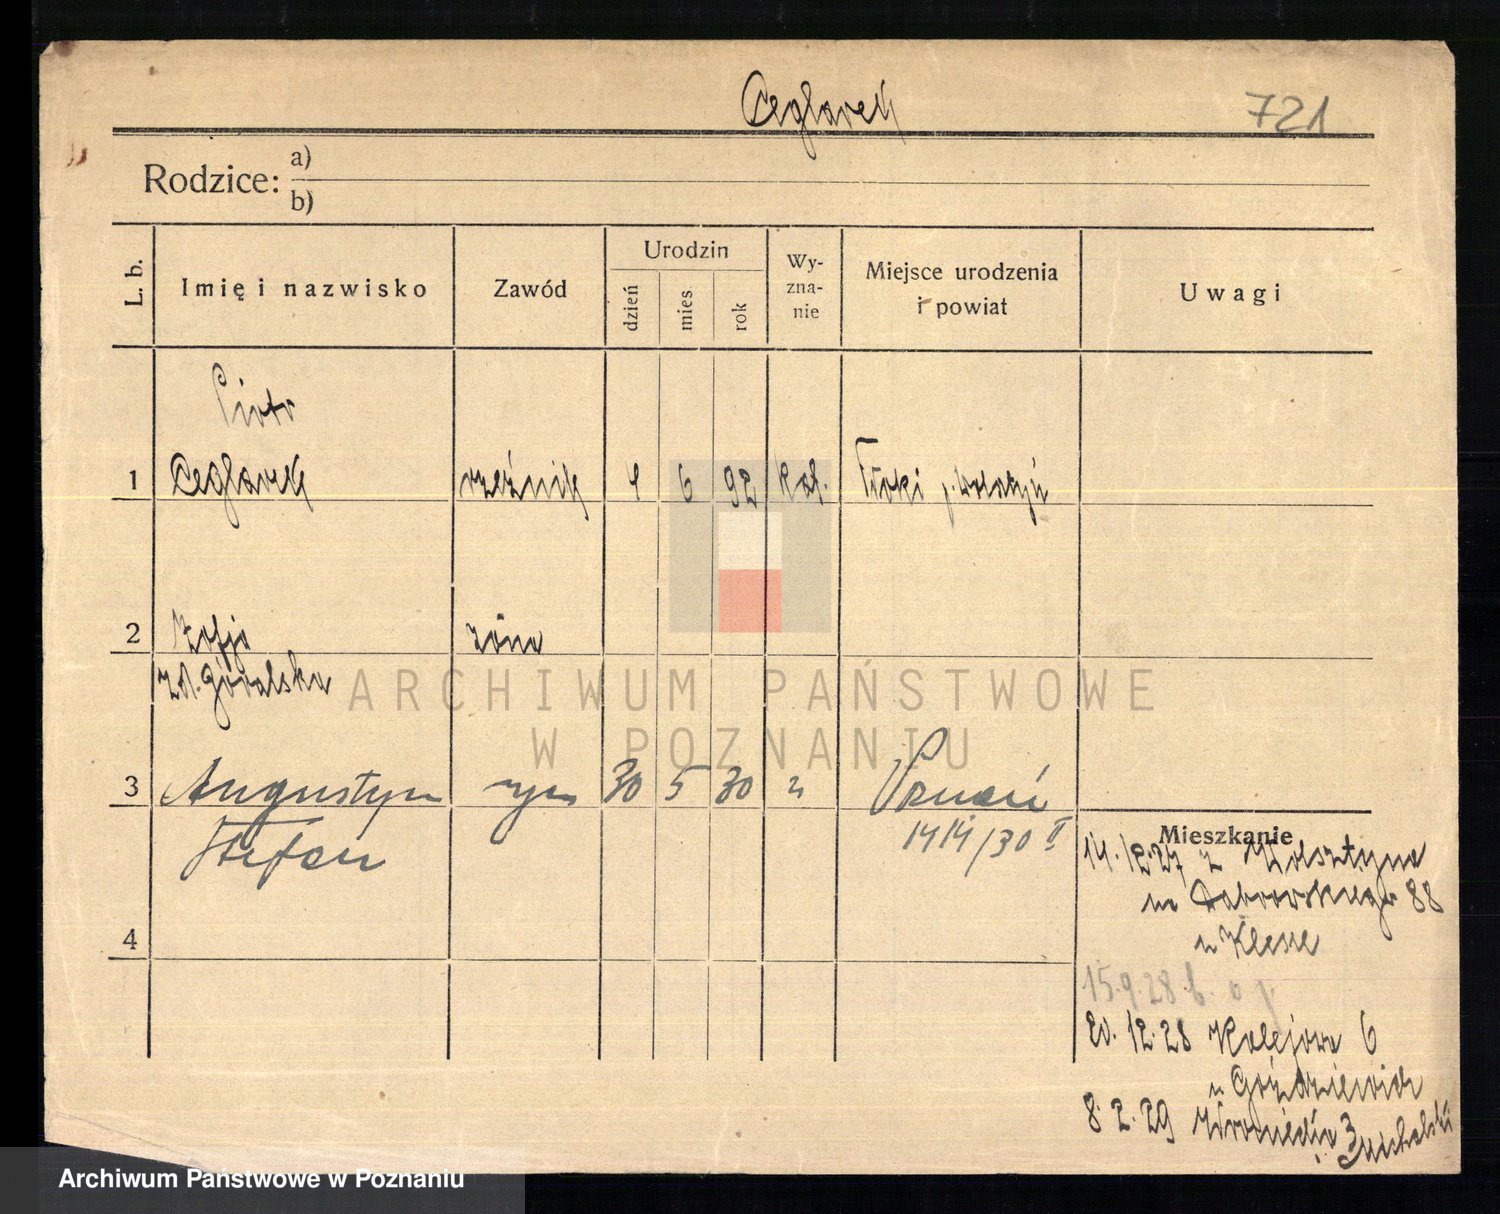 Ceglarek
721
Rodzice: a)
b)
L. b.
Imię i nazwisko
Zawód
Urodzin
dzień
mies
rok
Wy-
zna-
nie
Miejsce urodzenia
i powiat
Uwagi
Piotr
1 Ceglarek rzeźnik 4 6 92 kat. Tłoki p. Wolsztyń
2 Zofja żona
zd. Góralska
3 Augustyn syn 30 5 30 " Poznań
Stefan 1414/30 II
4
Mieszkanie
14.12.27 z Wolsztyna
na Dąbrowskiego 88
u Klesse
15.9.28
20.12.28 Kolejowa 6
u Goździewicz
8.2.29 3 Michalski
ARCHIWUM PAŃSTWOWE
W POZNANIU
Archiwum Państwowe w Poznaniu